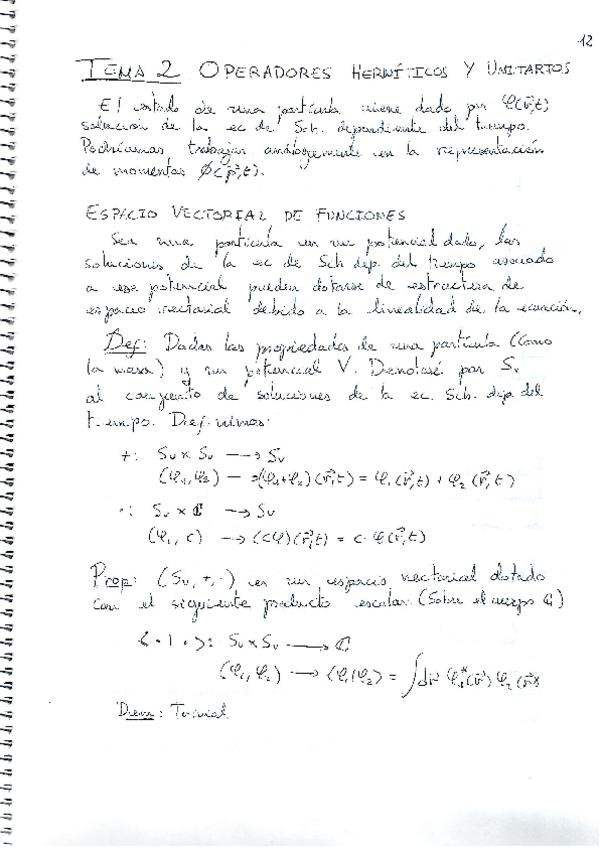 12
TEMA 2 OPERADORES HERMÍTICOS Y UNITARIOS
El estado de una partícula viene dado por φ(r⃗,t)
solución de la ec de Sch. dependiente del tiempo.
Podríamos trabajar análogamente en la representación
de momentos ϕ(p⃗,t).
ESPACIO VECTORIAL DE FUNCIONES
Sea una partícula en un potencial dado, las
soluciones de la ec de Sch dep. del tiempo asociado
a ese potencial pueden dotarse de estructura de
espacio vectorial debido a la linealidad de la ecuación.
Def: Dadas las propiedades de una partícula (como
la masa) y un potencial V. Denotaré por Sv
al conjunto de soluciones de la ec. Sch. dep. del
tiempo. Definimos:
+: Sv × Sv → Sv
(φ₁,φ₂) → (φ₁+φ₂)(r⃗,t) = φ₁(r⃗,t) + φ₂(r⃗,t)
·: Sv × ℂ → Sv
(φ₁,c) → (cφ)(r⃗,t) = c·φ(r⃗,t)
Prop: (Sv,+,·) es un espacio vectorial dotado
con el siguiente producto escalar. (Sobre el cuerpo ℂ)
<·|·>: Sv×Sv → ℂ
(φ₁,φ₂) → <φ₁|φ₂> = ∫dr⃗ φ₁*(r⃗) φ₂(r⃗)
Dem: Trivial